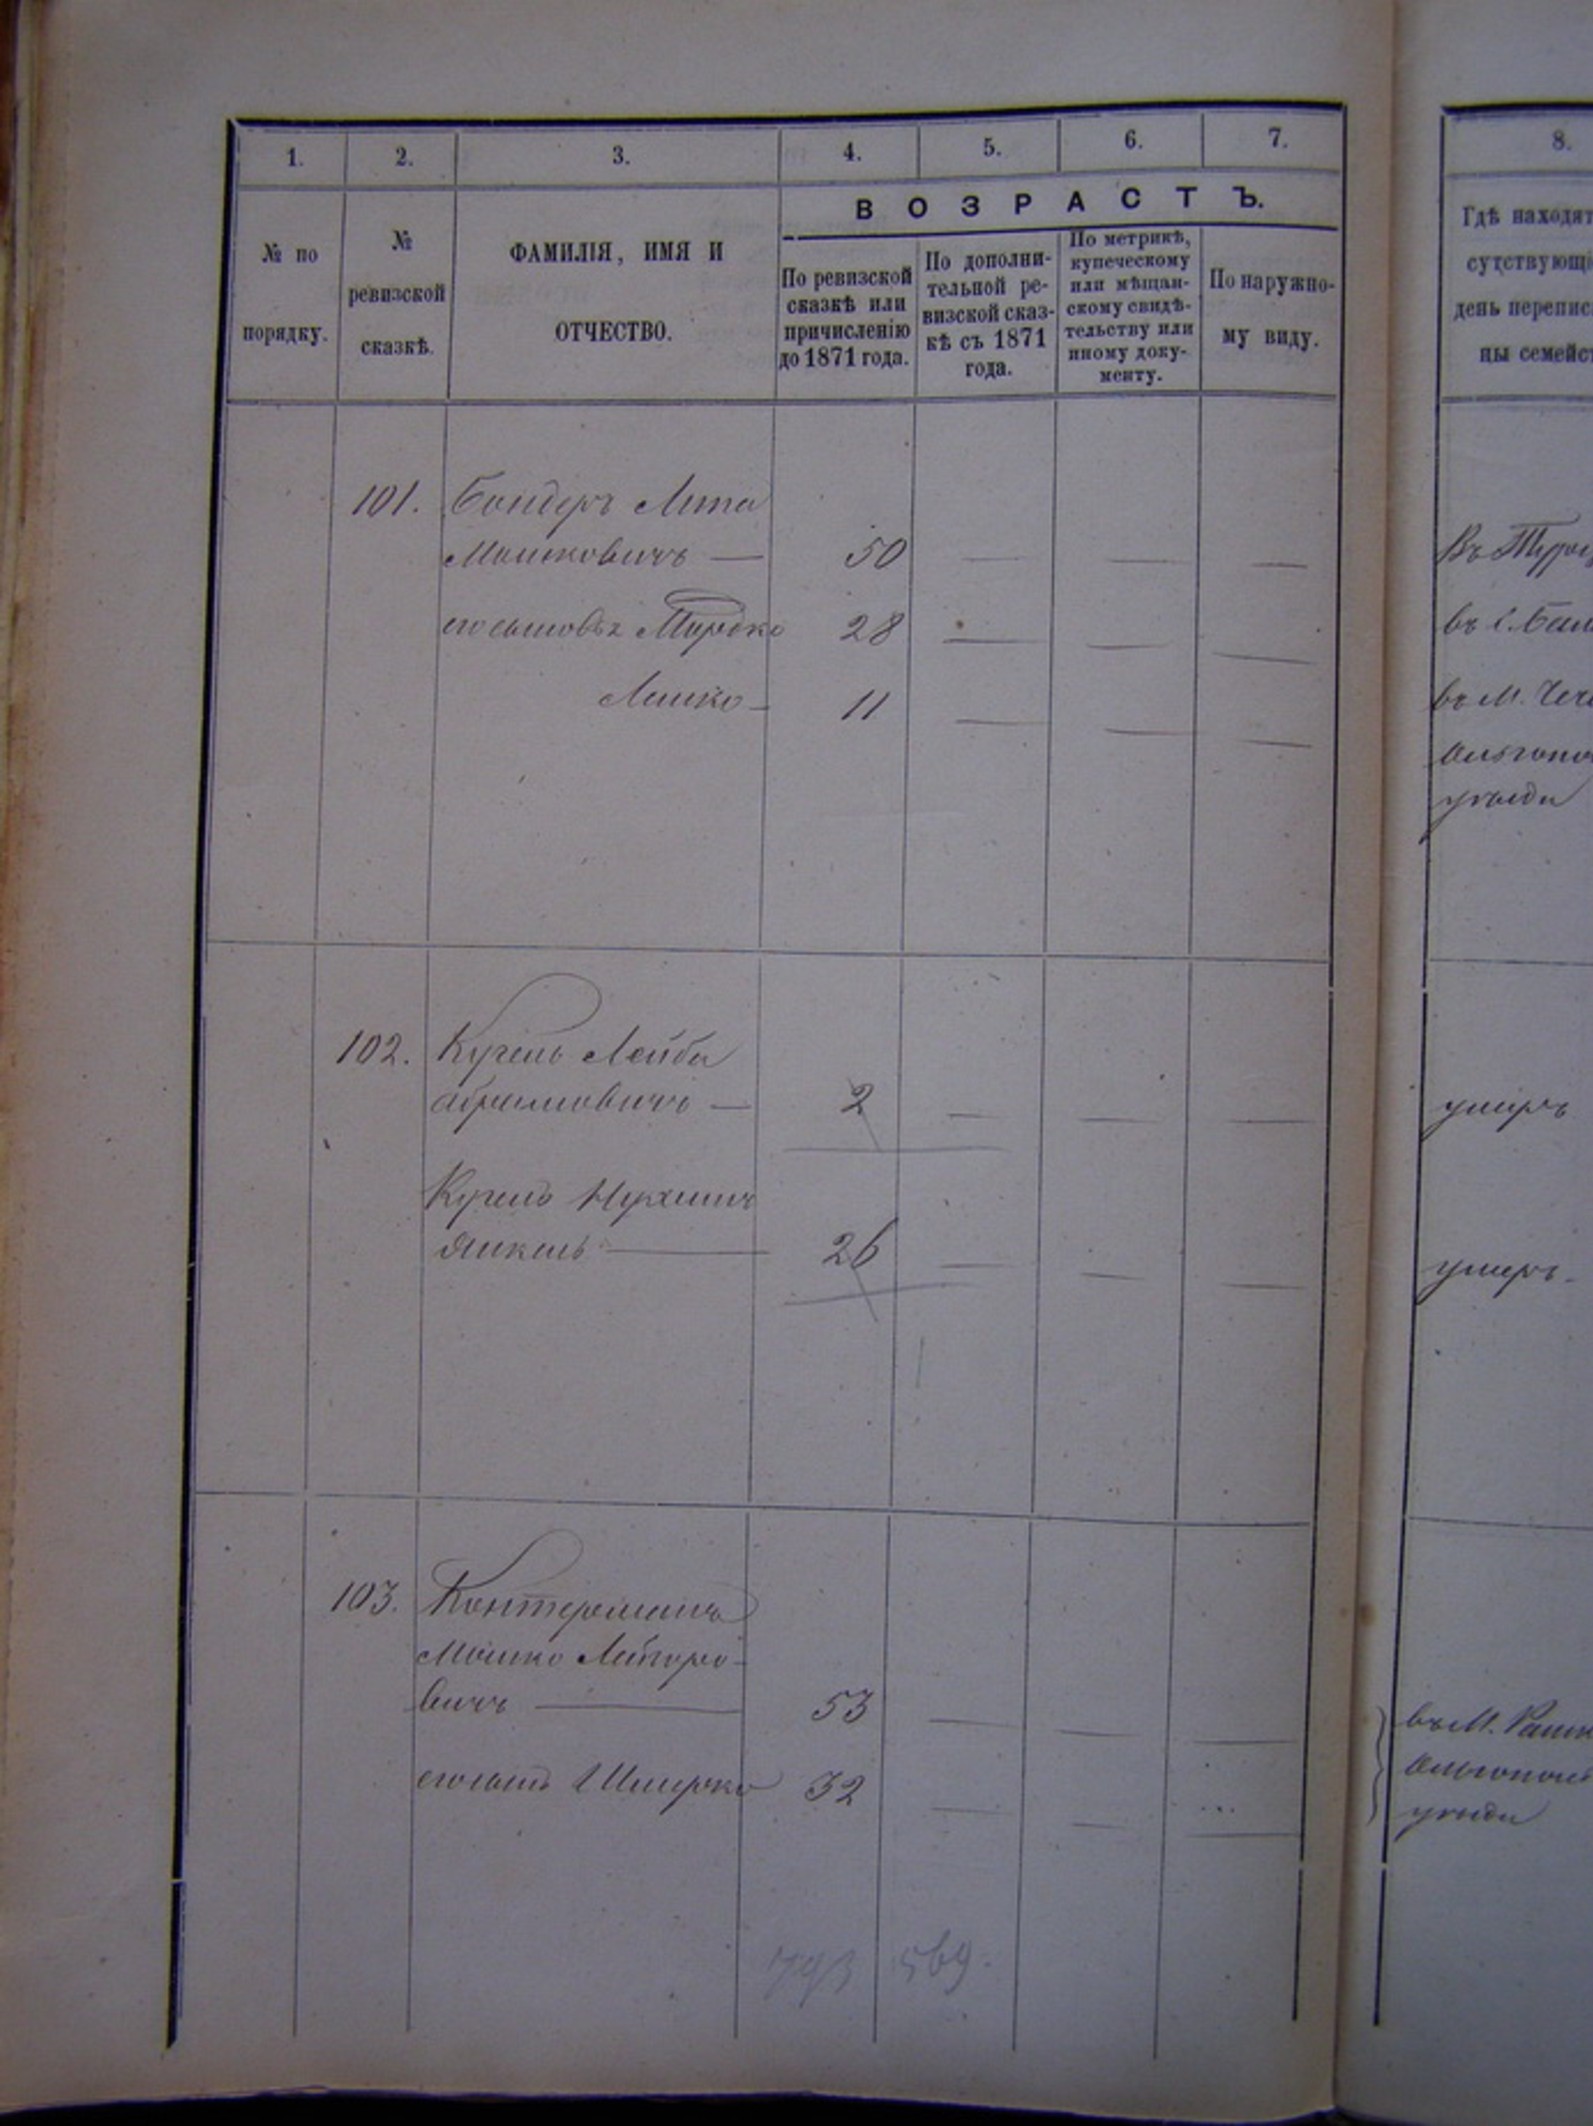 1. 2. 3. 4. 5. 6. 7. 8.
ВОЗРАСТЪ.
№ по порядку.
№ ревизской сказкѣ.
ФАМИЛІЯ, ИМЯ И ОТЧЕСТВО.
По ревизской
сказкѣ или
причисленію
до 1871 года.
По дополни-
тельной ре-
визской сказ-
кѣ съ 1871
года.
По метрикѣ,
купеческому
или мѣщан-
скому свидѣ-
тельству или
иному доку-
менту.
По наружно-
му виду.
Гдѣ находят
сутствующі
день переписи
цы семейст
101. Бондеръ
Мошковичъ — 50 — — —
его сыновья Мордко 28 — — —
11 — — —
въ М. Чече
Ольгопол
уѣзда
102. Кугель Лейба
Абрамовичъ — 2 — — — умеръ
Кугель Нухимъ
Янкель — 26 — — — умеръ.
103. Контерманъ
Мошко
вичъ — 53 — — — въ М. Рашк
его сынъ Шмерко 32 — — — Ольгопол
уѣзда
793 569.